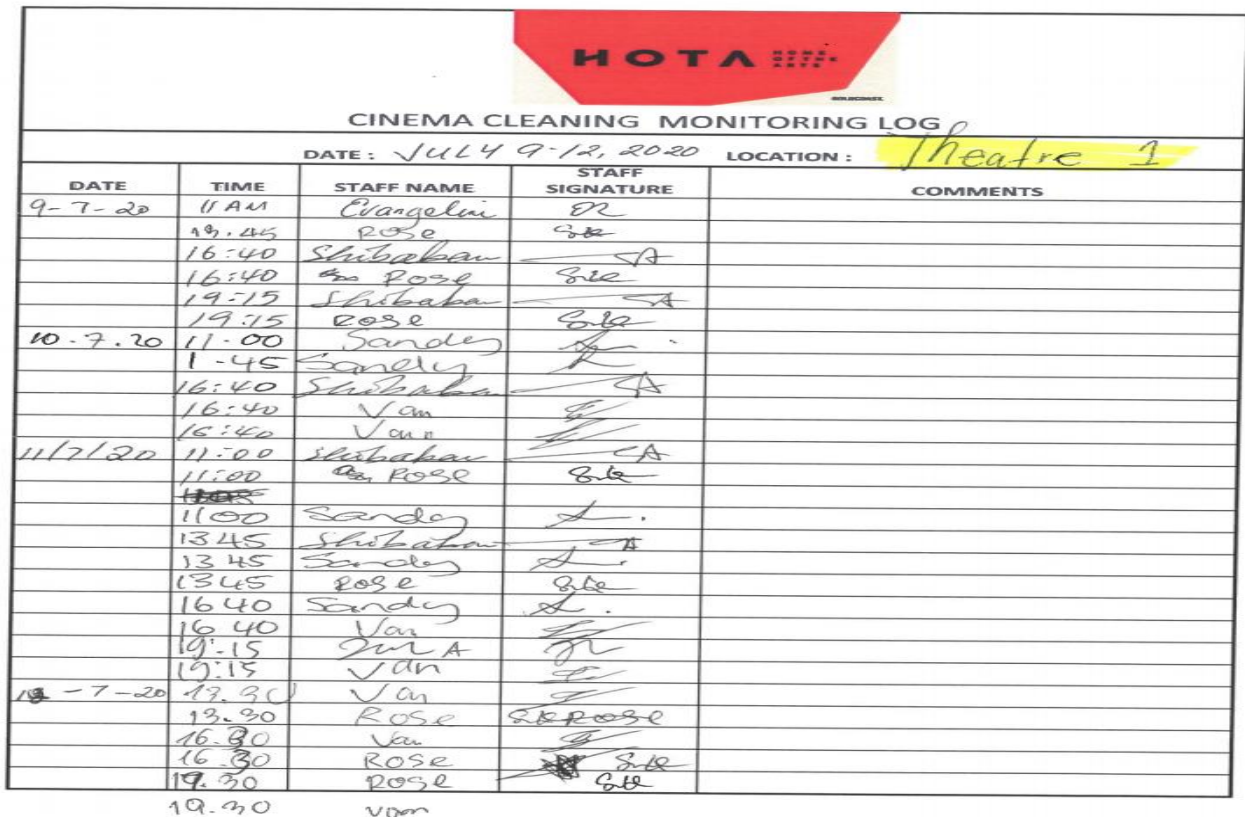 HOTA HOME OF THE ARTS
GOLD COAST
CINEMA CLEANING MONITORING LOG
DATE : JULY 9-12, 2020 LOCATION : Theatre 1
DATE TIME STAFF NAME STAFF SIGNATURE COMMENTS
9-7-20 11 AM Evangelini
13.45 Rose
16:40 Shibabaw SA
16:40 Rose
19:15 Shibabaw SA
19:15 Rose
10.7.20 11.00 Sandy
1-45 Sandy
16:40 Shibabaw SA
16:40 Van
16:40 Van
11/7/20 11:00 Shibabaw SA
11:00 Rose
1100 Sandy
1345 Shibabaw
1345 Sandy
1345 Rose
1640 Sandy
1640 Van
19:15 A
19:15 Van
-7-20 13.30 Van
13.30 Rose Rose
16.30 Van
16.30 Rose
19.30 Rose
19.30 Van